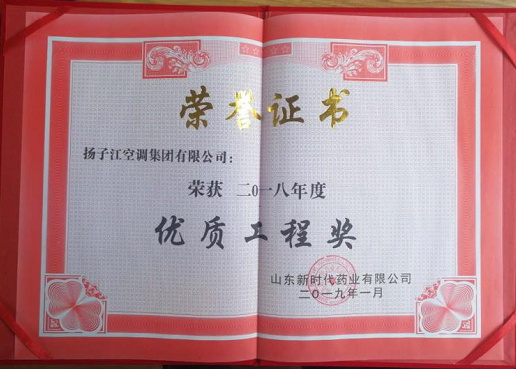 荣誉证书
扬子江空调集团有限公司：
荣获 二〇一八年度
优质工程奖
山东新时代药业有限公司
二〇一九年一月